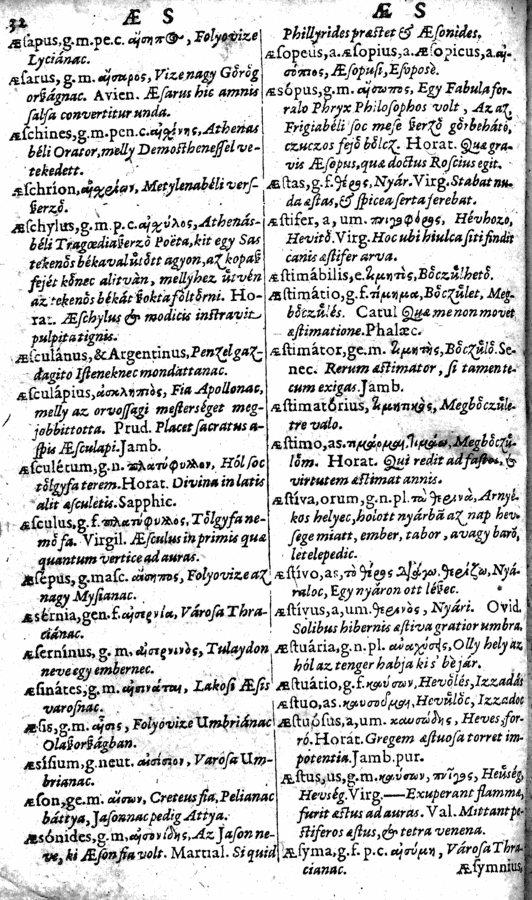 32
Æ S
Æsapus, g.m.pe.c. αἴσηπος, Folyovize
Lyciánac.
Æsarus, g. m. αἴσαρος, Vize nagy Gőrőg
országnac. Avien. Æsarus hic amnis
salsa convertitur unda.
Æschines, g.m.pen.c. αἰσχίνης, Athenas
béli Orator, melly Demosthenessel ve-
tekedett.
Æschrion, αἰσχρίων, Metylenabéli vers-
szerző.
Æschylus, g.m.p.c. αἰσχύλος, Athenás-
béli Tragœdiaszerző Poëta, kit egy Sas
tekenős békával ütőtt agyon, az kopasz
fejét kőnec alitván, mellyhez ütvén
az tekenős békát szokta főltőrni. Ho-
rat. Æschylus & modicis instravit
pulpita tignis.
Æsculánus, & Argentinus, Penzel gaz-
dagito Isteneknec mondattanac.
Æsculápius, ἀσκληπιὸς, Fia Apollonac,
melly az orvossagi mesterséget meg-
jobbittotta. Prud. Placet sacratus a-
spis Æsculapi. Jamb.
Æsculétum, g.n. πλατύφυλλον, Hól soc
tőlgyfa terem. Horat. Divina in latis
alit æsculetis. Sapphic.
Æsculus, g.f. πλατύφυλλος, Tőlgyfa ne-
mő fa. Virgil. Æsculus in primis quæ
quantum vertice ad auras.
Æsépus, g.masc. αἴσηπος, Folyovize az
nagy Mysianac.
Æsérnia, gen.f. αἰσερνία, Városa Thra-
ciánac.
Æsernínus, g. m. αἰσερνινὸς, Tulaydon
neve egy embernec.
Æsinátes, g.m. αἰσινάται, Lakosi Æsis
varosnac.
Æsis, g.m. αἶσις, Folyovize Umbriánac
Olaszországban.
Æsísium, g.neut. αἰσίσιον, Varosa Um-
brianac.
Æson, ge.m. αἴσων, Creteus fia, Pelianac
báttya, Jasonnac pedig Attya.
Æsónides, g.m. αἰσονίδης, Az Jason ne-
ve, ki Æson fia volt. Martial. Si quid
Æ S
Phillyrides præstet & Æsonides.
Æsopeus, a. Æsopius, a. Æsopicus, a. αἰ-
σόπιος, Æsopusi, Esoposè.
Æsópus, g.m. αἴσωπος, Egy Fabula for-
ralo Phryx Philosophos volt, Az az
Frigiabéli soc mese szerző gőrbeháto,
czuczos fejő bőlcz. Horat. Quæ gra-
vis Æsopus, quæ doctus Roscius egit.
Æstas, g.f. θέρος, Nyár. Virg. Stabat nu-
da æstas, & spicea serta ferebat.
Æstifer, a, um. πνιγοφόρος, Hévhozo,
Hevitő. Virg. Hoc ubi hiulca siti findit
canis æstifer arva.
Æstimábilis, e. τιμητὸς, Bőczűlhető.
Æstimátio, g.f. τίμημα, Bőczűlet, Meg-
bőczűlés. Catul. Quæ me non movet
æstimatione. Phalæc.
Æstimátor, ge.m. τιμητὴς, Bőczűlő. Se-
nec. Rerum æstimator, si tamen te-
cum exigas. Jamb.
Æstimatórius, τιμητικὸς, Megbőczűle-
tre valo.
Æstimo, as. τιμάομαι, τιμάω, Megbőczű-
lőm. Horat. Qui redit ad fastos, &
virtutem æstimat annis.
Æstíva, orum, g.n.pl. τὰ θερινὰ, Arnyé-
kos helyec, holott nyárbã az nap hev-
sége miatt, ember, tabor, avagy baro,
letelepedic.
Æstívo, as, τὸ θέρος διάγω, θερίζω, Nyá-
raloc, Egy nyáron ott lészec.
Æstívus, a, um. θερινὸς, Nyári. Ovid.
Solibus hibernis æstiva gratior umbra.
Æstuária, g.n.pl. ἀναχύσεις, Olly hely az
hól az tenger habja ki s' bè jár.
Æstuátio, g.f. καύσων, Hevőlés, Izzadás
Æstuo, as. καυσοῦμαι, Hevűlőc, Izzadoc
Æstuósus, a, um. καυσώδης, Heves, for-
ró. Horat. Gregem æstuosa torret im-
potentia. Jamb. pur.
Æstus, us, g.m. καύσων, πνῖγος, Heűség,
Hevség. Virg. — Exuperant flammæ,
furit æstus ad auras. Val. Mittant pe-
stiferos æstus, & tetra venena.
Æsyma, g.f. p.c. αἰσύμη, Városa Thra-
cianac.
Æsymnius,